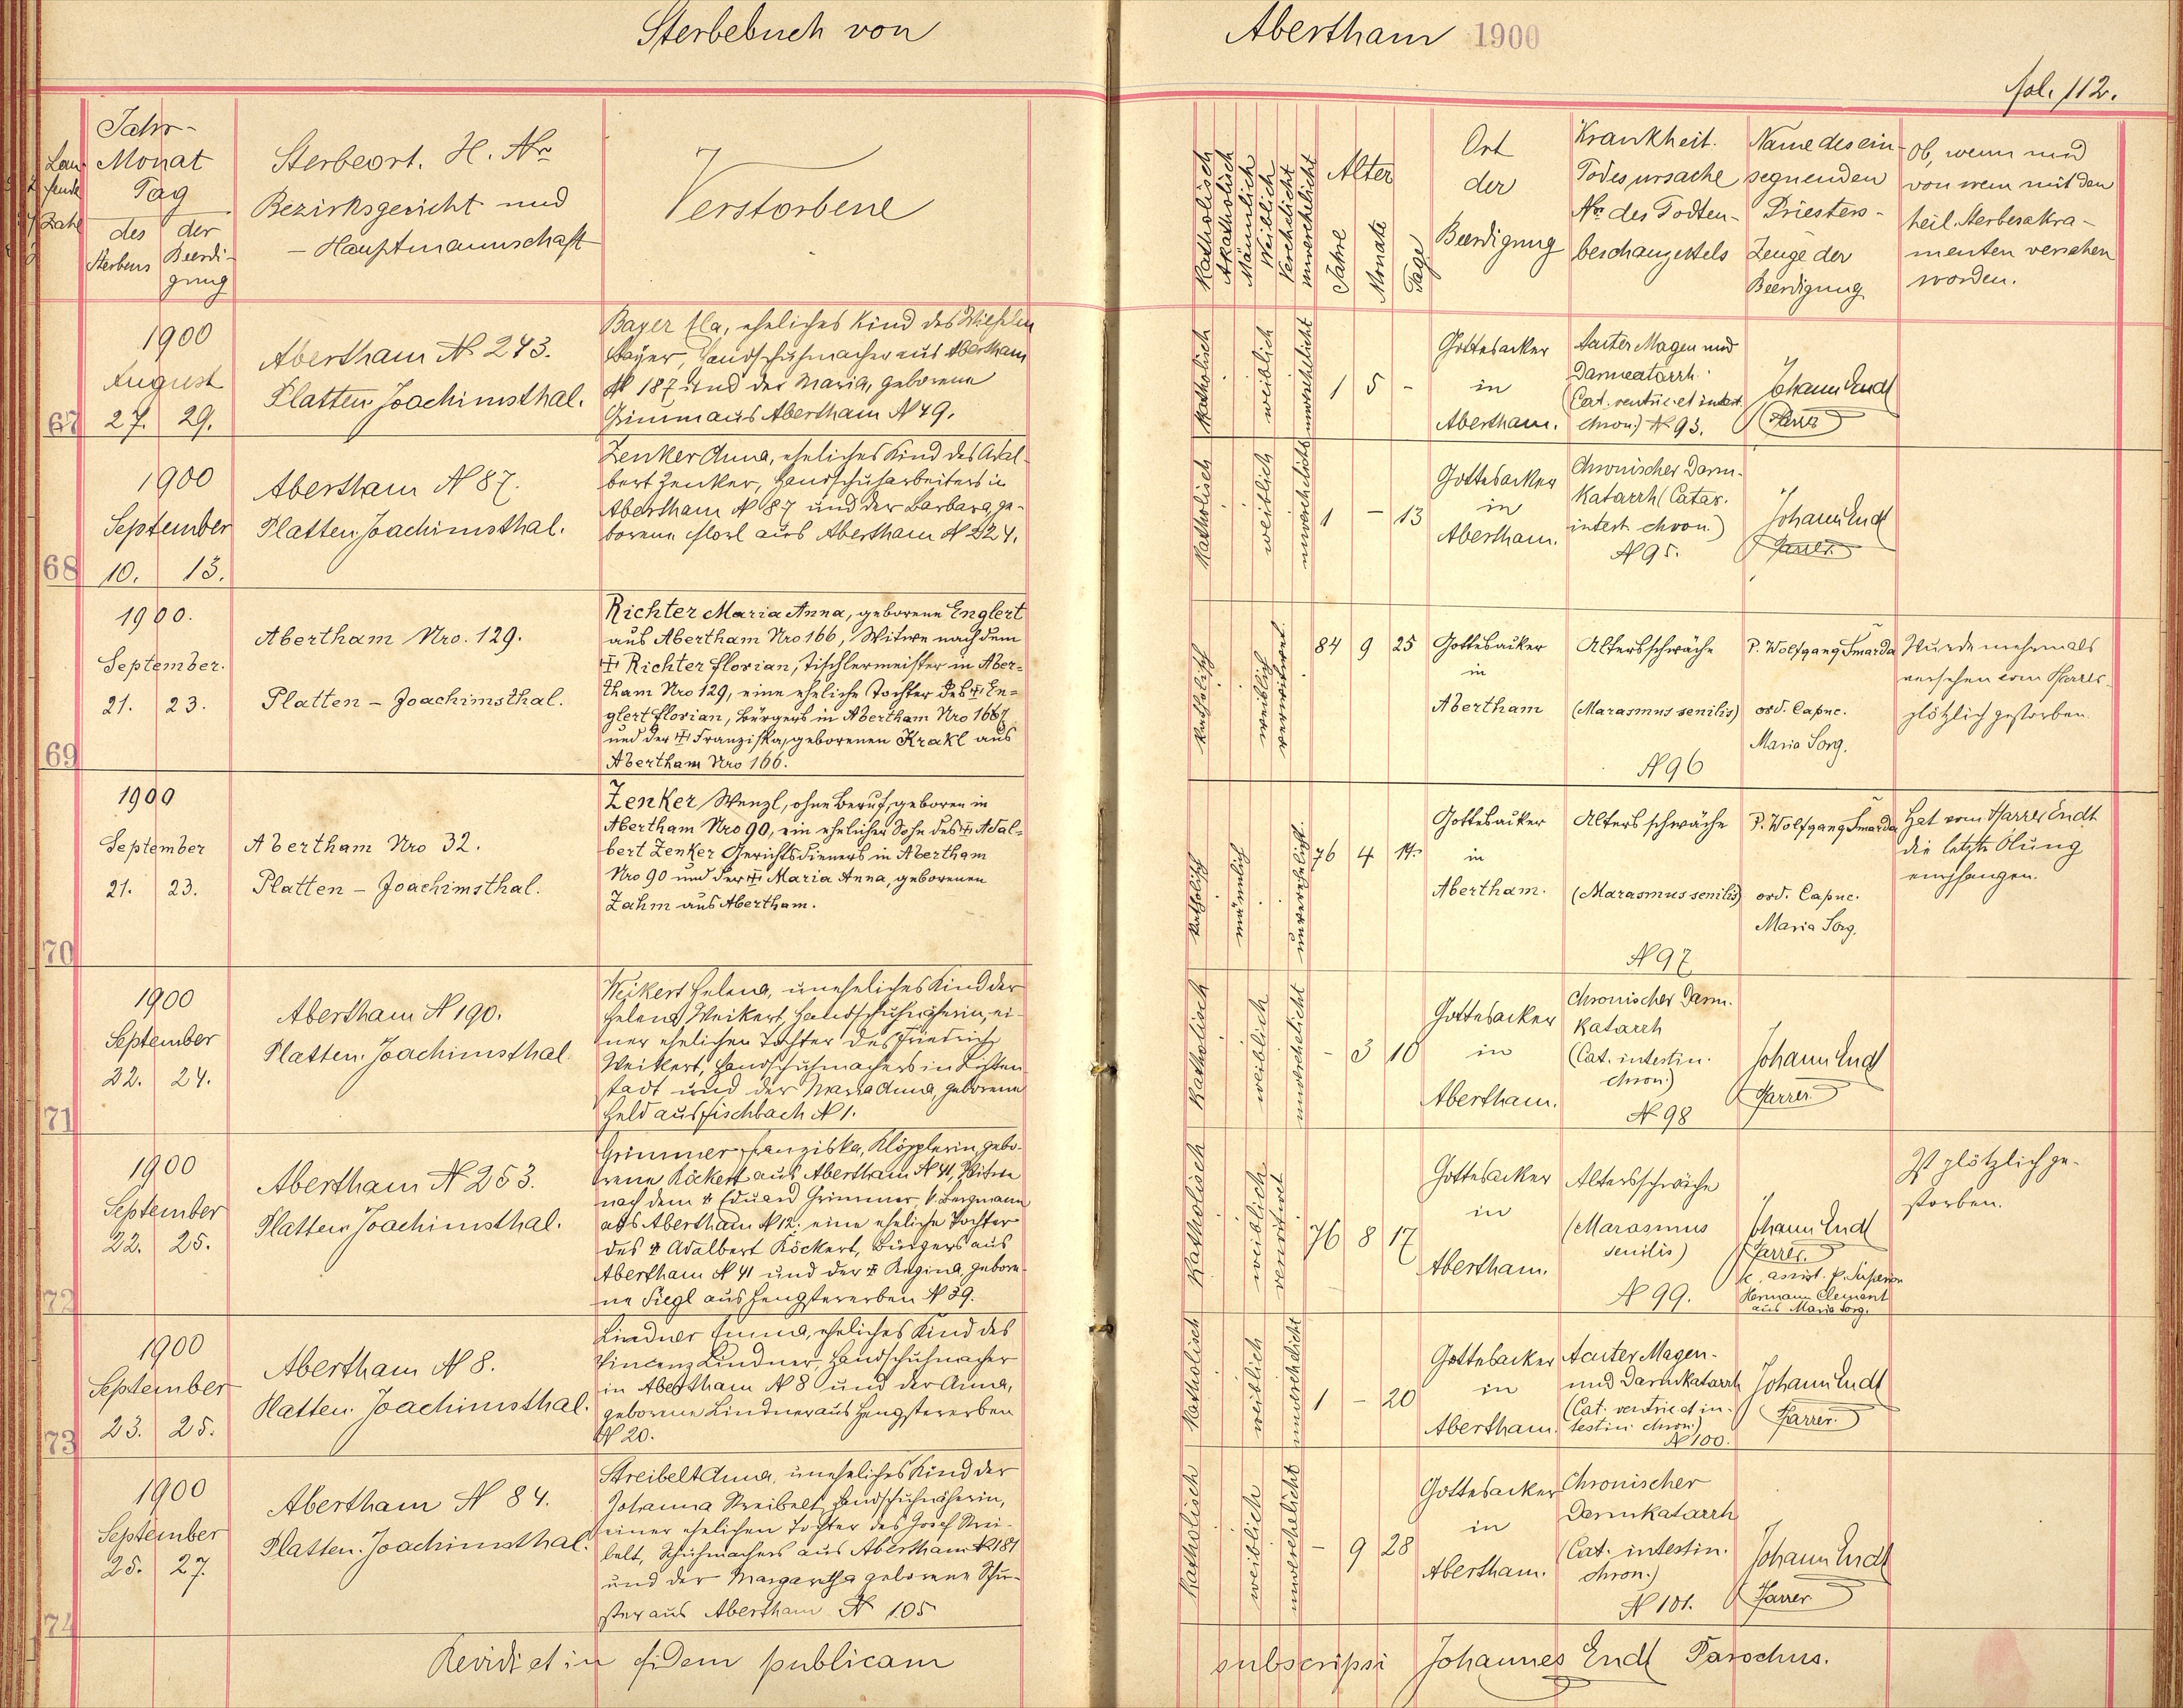 Sterbebuch von Abertham 1900
fol. 112.
Laufende Zahl
Jahr-
Monat
Tag
des Sterbens
der Beerdi-
gung
Sterbeort. H. Nro
Bezirksgericht und
- Hauptmannschaft
Verstorbene
Katholisch
Akatholisch
Männlich
Weiblich
Verehelicht
unverehelicht
Alter
Jahre
Monate
Tage
Ort
der
Beerdigung
Krankheit.
Todesursache
Nro des Todten-
beschauzettels
Name des ein-
segnenden
Priesters-
Zeuge der
Beerdigung
Ob, wenn und
von wem mit den
heil. Sterbesakra-
menten versehen
worden.
67
1900
August
27. 29.
Abertham N 243.
Platten Joachimsthal.
Bayer Ella, eheliches Kind des Wilhelm
Bayer, Handschuhmacher aus Abertham
N 187 und der Maria, geborene
Grimm aus Abertham N 49.
katholisch
weiblich
unverehelicht
1 5 -
Gottesacker
in
Abertham.
Acuter Magen und
Darmcatarrh
(Cat. ventric. et intest.
chron.) N 93.
Johann Endt
Pfarrer
68
1900
September
10. 13.
Abertham N 87.
Platten Joachimsthal.
Zenker Anna, eheliches Kind des Adal-
bert Zenker, Handschuharbeiters in
Abertham N 87 und der Barbara, ge-
borene Florl aus Abertham N 224.
katholisch
weiblich
unverehelicht
1 - 13
Gottesacker
in
Abertham.
Chronischer Darm-
Katarrh (Catar.
intest. chron.)
N 95.
Johann Endt
Pfarrer.
69
1900.
September.
21. 23.
Abertham Nro. 129.
Platten - Joachimsthal.
Richter Maria Anna, geborene Englert
aus Abertham Nro 166, Witwe nach dem
† Richter Florian, Tischlermeister in Aber-
tham Nro 129, eine eheliche Tochter des † En-
glert Florian, Bürgers in Abertham Nro 166
und der † Franziska, geborenen Krakl aus
Abertham Nro 166.
katholisch
weiblich
verwitwet
84 9 25
Gottesacker
in
Abertham
Altersschwäche
(Marasmus senilis)
N 96
P. Wolfgang Šmarda
ord. Capuc.
Maria Sorg.
Wurde mehrmals
versehen vom Pfarrer.
plötzlich gestorben.
70
1900
September
21. 23.
Abertham Nro 32.
Platten - Joachimsthal.
Zenker Wenzl, ohne Beruf, geboren in
Abertham Nro 90, ein ehelicher Sohn des † Adal-
bert Zenker Gerichtsdieners in Abertham
Nro 90 und der † Maria Anna, geborenen
Zahm aus Abertham.
katholisch
männlich
unverehelicht
76 4 14.
Gottesacker
in
Abertham.
Altersschwäche
(Marasmus senilis)
N 97
P. Wolfgang Šmarda
ord. Capuc.
Maria Sorg.
Hat vom Pfarrer Endt
die letzte Ölung
empfangen.
71
1900
September
22. 24.
Abertham N 190.
Platten. Joachimsthal.
Weikert Helena, uneheliches Kind der
Helena Weikert, Handschuhnäherin, ei-
ner ehelichen Tochter des Friedrich
Weikert, Handschuhmachers in Lichten-
stadt und der Maria Anna, geborene
Held aus Fischbach N 1.
katholisch
weiblich
unverehelicht
- 3 10
Gottesacker
in
Abertham.
Chronischer Darm-
katarrh
(Cat. intestin.
chron.)
N 98
Johann Endt
Pfarrer
72
1900
September
22. 25.
Abertham N 253.
Platten. Joachimsthal.
Grimmer Franziska, Klöpplerin, gebo-
rene Köckert aus Abertham N 41, Witwe
nach dem † Eduard Grimmer, Bergmann
aus Abertham N 12. eine eheliche Tochter
des † Adalbert Köckert, Bürgers aus
Abertham N 41 und der † Regina, gebore-
ne Siegl aus Hengstererben N 39.
katholisch
weiblich
verwitwet
76 8 17
Gottesacker
in
Abertham.
Altersschwäche
(Marasmus
senilis)
N 99.
Johann Endt
Pfarrer.
assist. P. Superior
Hermann Clement
aus Maria Sorg.
Ist plötzlich ge-
storben.
73
1900
September
23. 25.
Abertham N 8.
Platten. Joachimsthal.
Lindner Emma, eheliches Kind des
Vincenz Lindner, Handschuhmacher
in Abertham N 8 und der Anna,
geborene Lindner aus Hengstererben
N 20.
katholisch
weiblich
unverehelicht
1 - 20
Gottesacker
in
Abertham.
Acuter Magen-
und Darmkatarrh
(Cat. ventric et in-
testin chron.)
N 100.
Johann Endt
Pfarrer.
74
1900
September
25. 27.
Abertham N 84.
Platten. Joachimsthal.
Streibelt Anna, uneheliches Kind der
Johanna Streibelt, Handschuhnäherin,
einer ehelichen Tochter des Josef Strei-
belt, Schuhmachers aus Abertham N 181
und der Margaretha geborene Schu-
ster aus Abertham N 105
katholisch
weiblich
unverehelicht
- 9 28
Gottesacker
in
Abertham.
Chronischer
Darmkatarrh
(Cat. intestin.
chron.)
N 101.
Johann Endt
Pfarrer
Revidi et in fidem publicam subscripsi Johannes Endt Parochus.